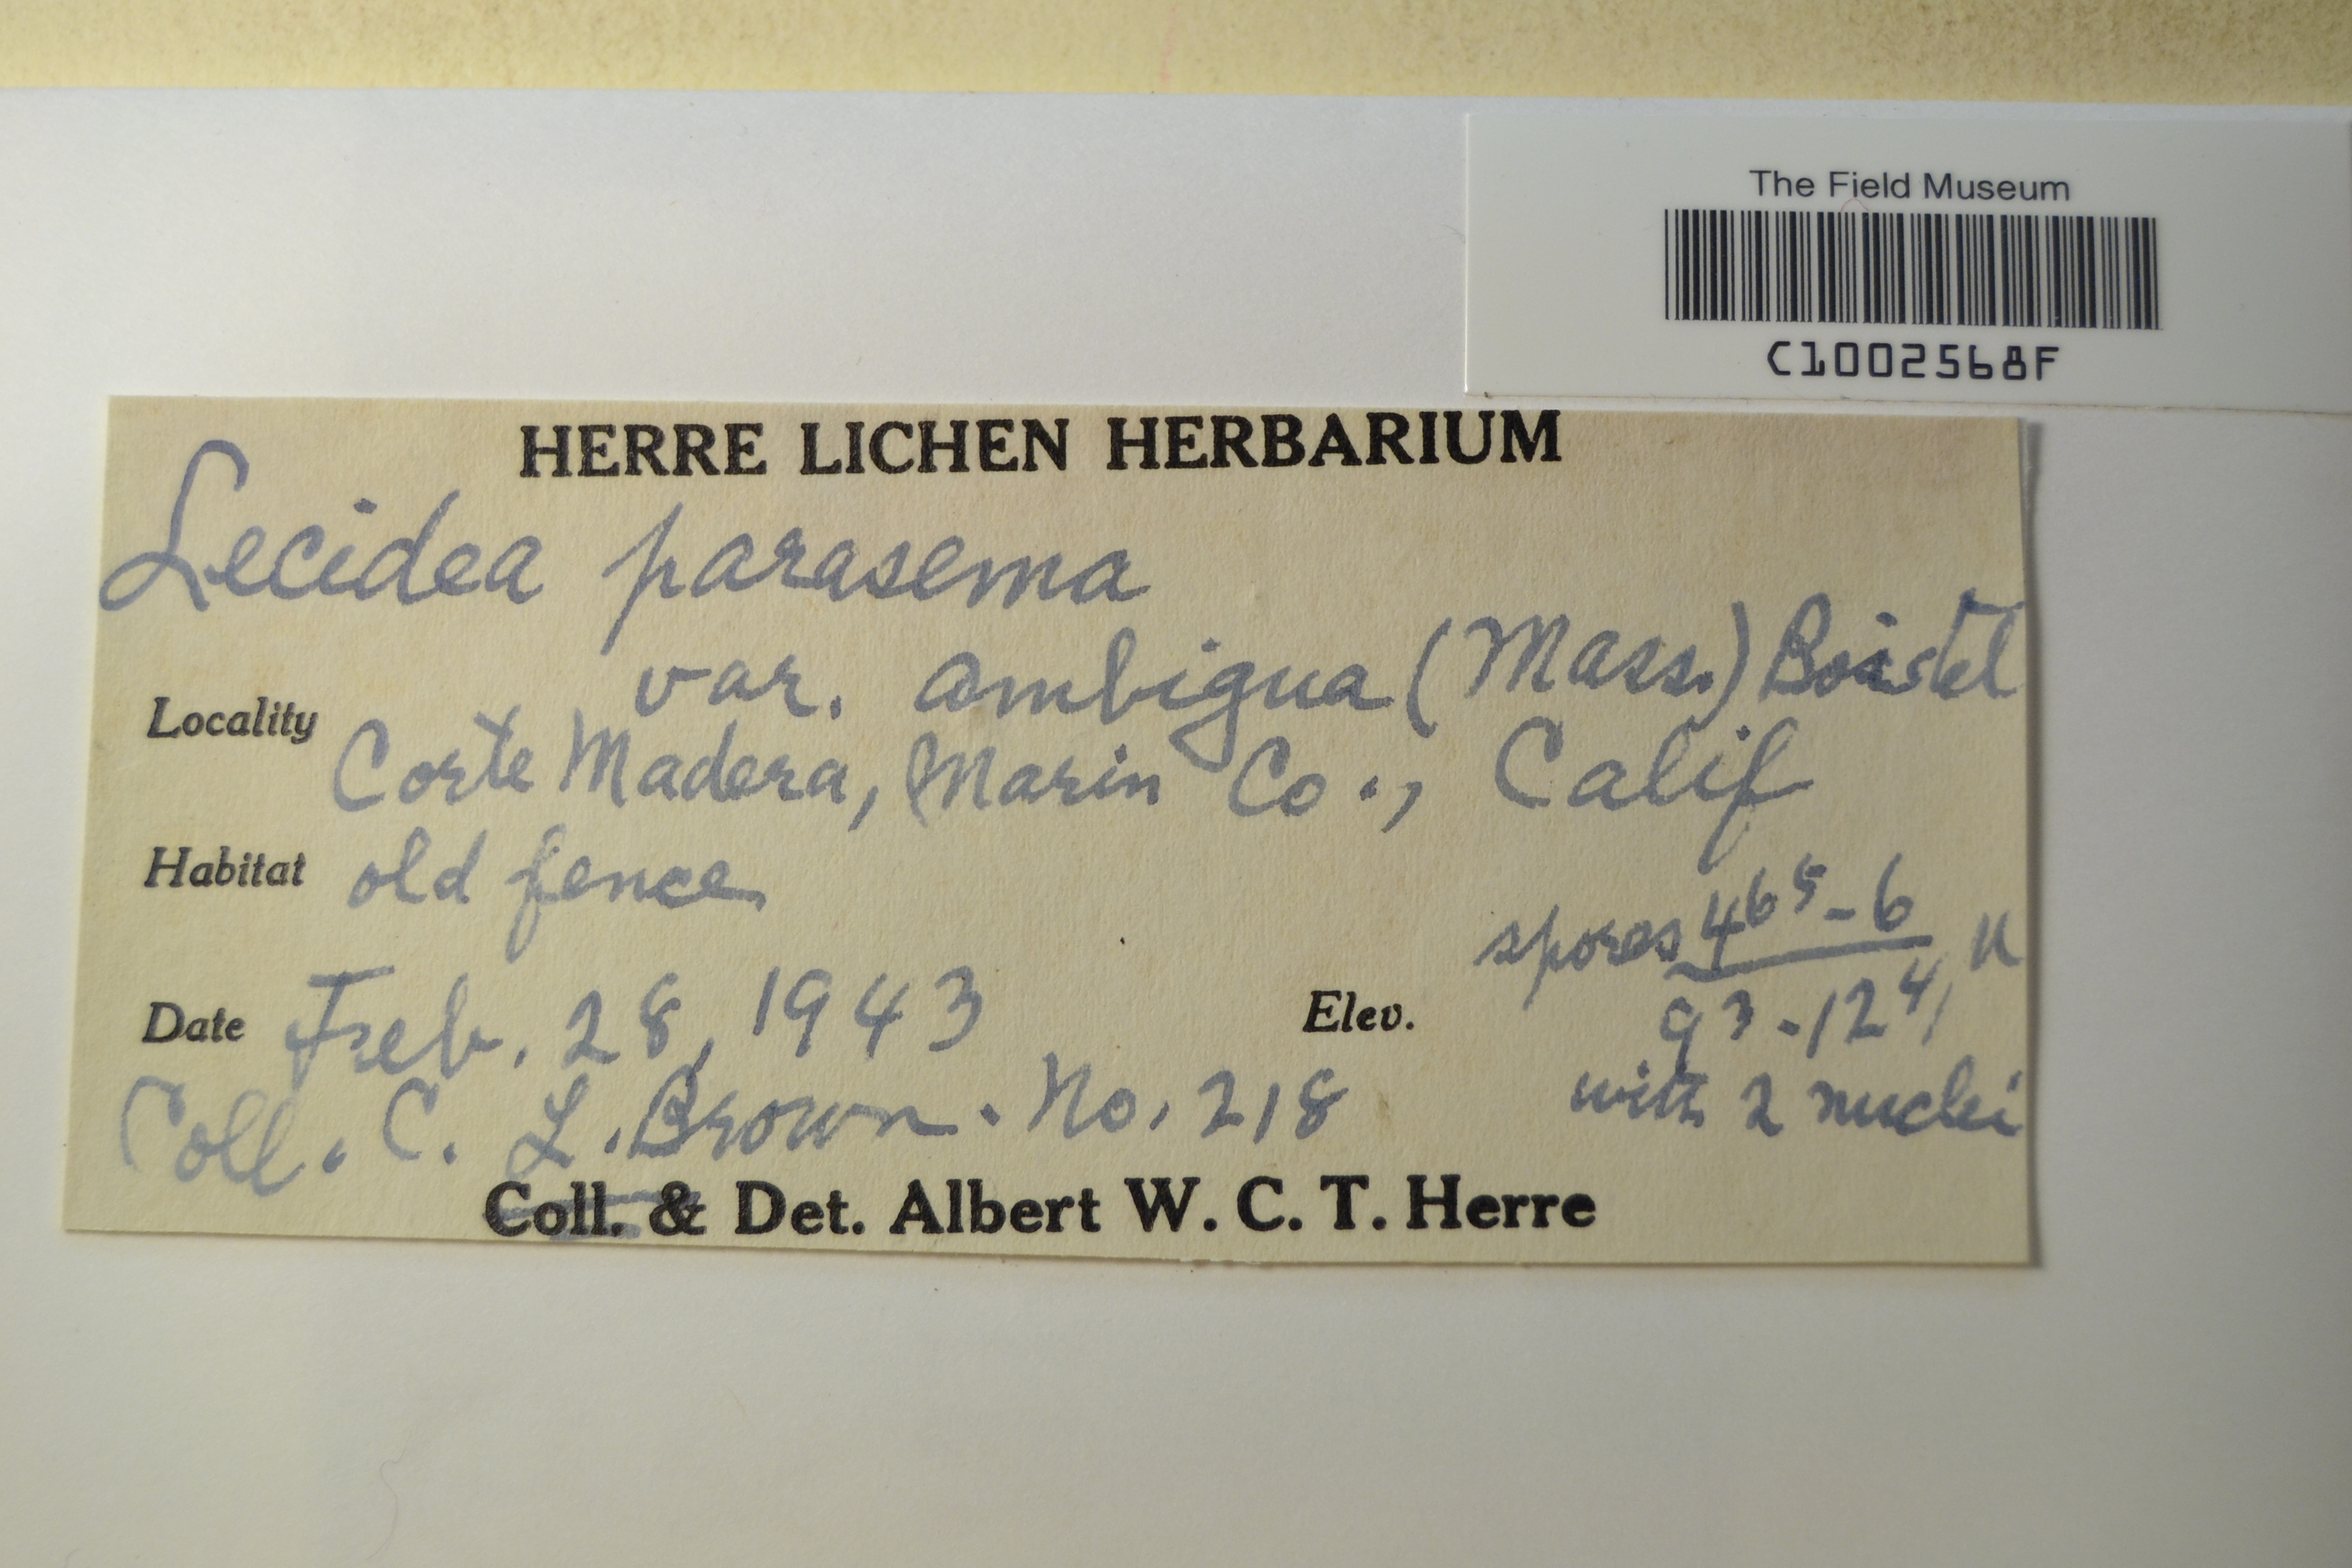 The Field Museum
C1002568F
HERRE LICHEN HERBARIUM
Lecidea parasema
var. ambigua (Mass.) Boistel
Locality
Corte Madera, Marin Co., Calif
Habitat old fence
spores 4⁶⁵-6
9³-12⁴, u
Date Feb. 28, 1943 Elev.
with 2 nuclei
Coll. C. L. Brown. No. 218
Coll. & Det. Albert W. C. T. Herre